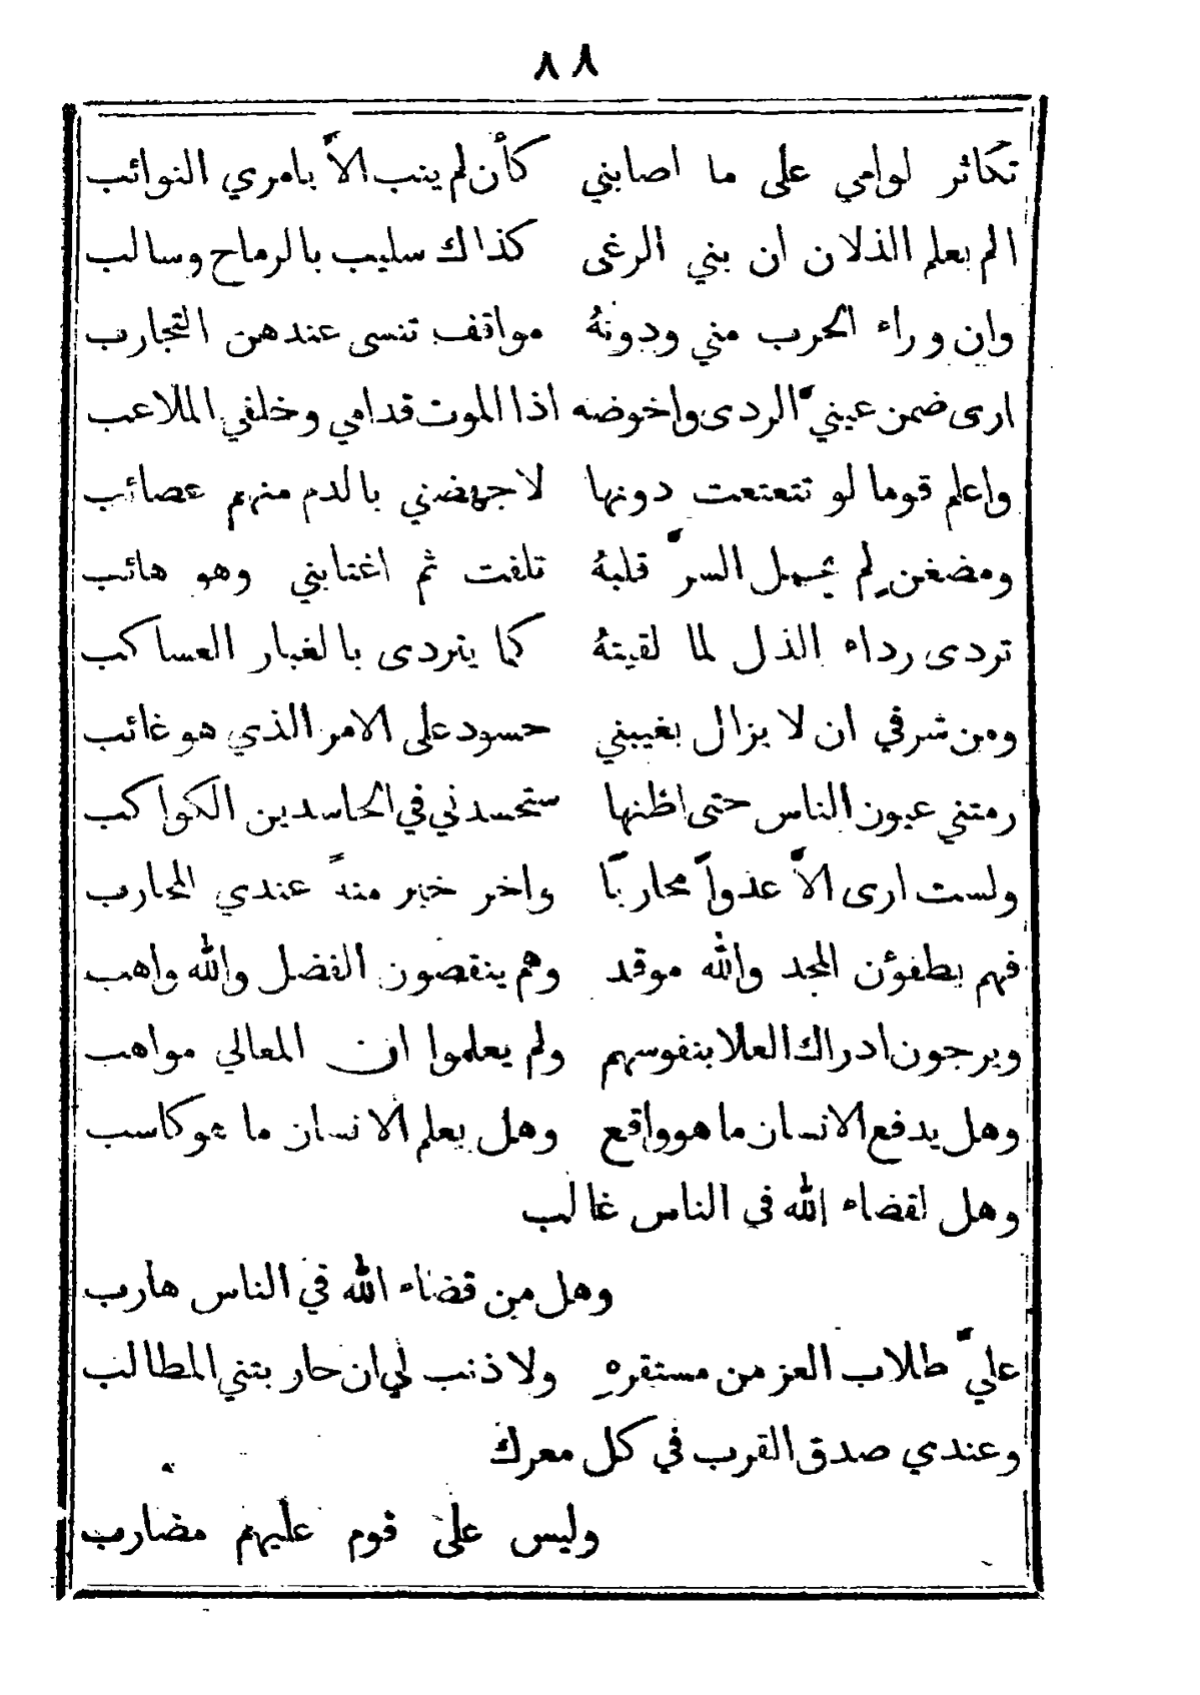 ٨٨
تكاثر لوامي على ما اصابني كأن لم ينب الاّ بامري النوائب
الم يعلم الذلان ان بني الرغى كذاك سليب بالرماح وسالب
وان وراء الحرب مني ودونهُ مواقف تنسى عندهن التجارب
ارى ضمن عينيّ الردى واخوضه اذا الموت قدامي وخلفي الملاعب
واعلم قوما لو تتعتعت دونها لاجهضني بالدم منهم عصائب
ومضغن لم يحمل السرّ قلبهُ تلفت ثم اغتابني وهو هائب
تردى رداء الذل لما لقيتهُ كما يتردى بالغبار العساكب
ومن شرفي ان لا يزال يغيبني حسود على الامر الذي هو غائب
رمتني عيون الناس حتى اظنها ستحسدني في الحاسدين الكواكب
ولست ارى الاّ عدواّ محارباّ واخر خير منهً عندي المحارب
فهم يطفؤن المجد والله موقد وهم ينقصون الفضل والله واهب
ويرجون ادراك العلا بنفوسهم ولم يعلموا ان المعالي مواهب
وهل يدفع الانسان ما هو واقع وهل يعلم الانسان ما هو كاسب
وهل لقضاء الله في الناس غالب
وهل من قضاء الله في الناس هارب
عليّ طلاب العز من مستقرهِ ولا ذنب لي ان حاربتني المطالب
وعندي صدق القرب في كل معرك
وليس على قوم عليهم مضارب